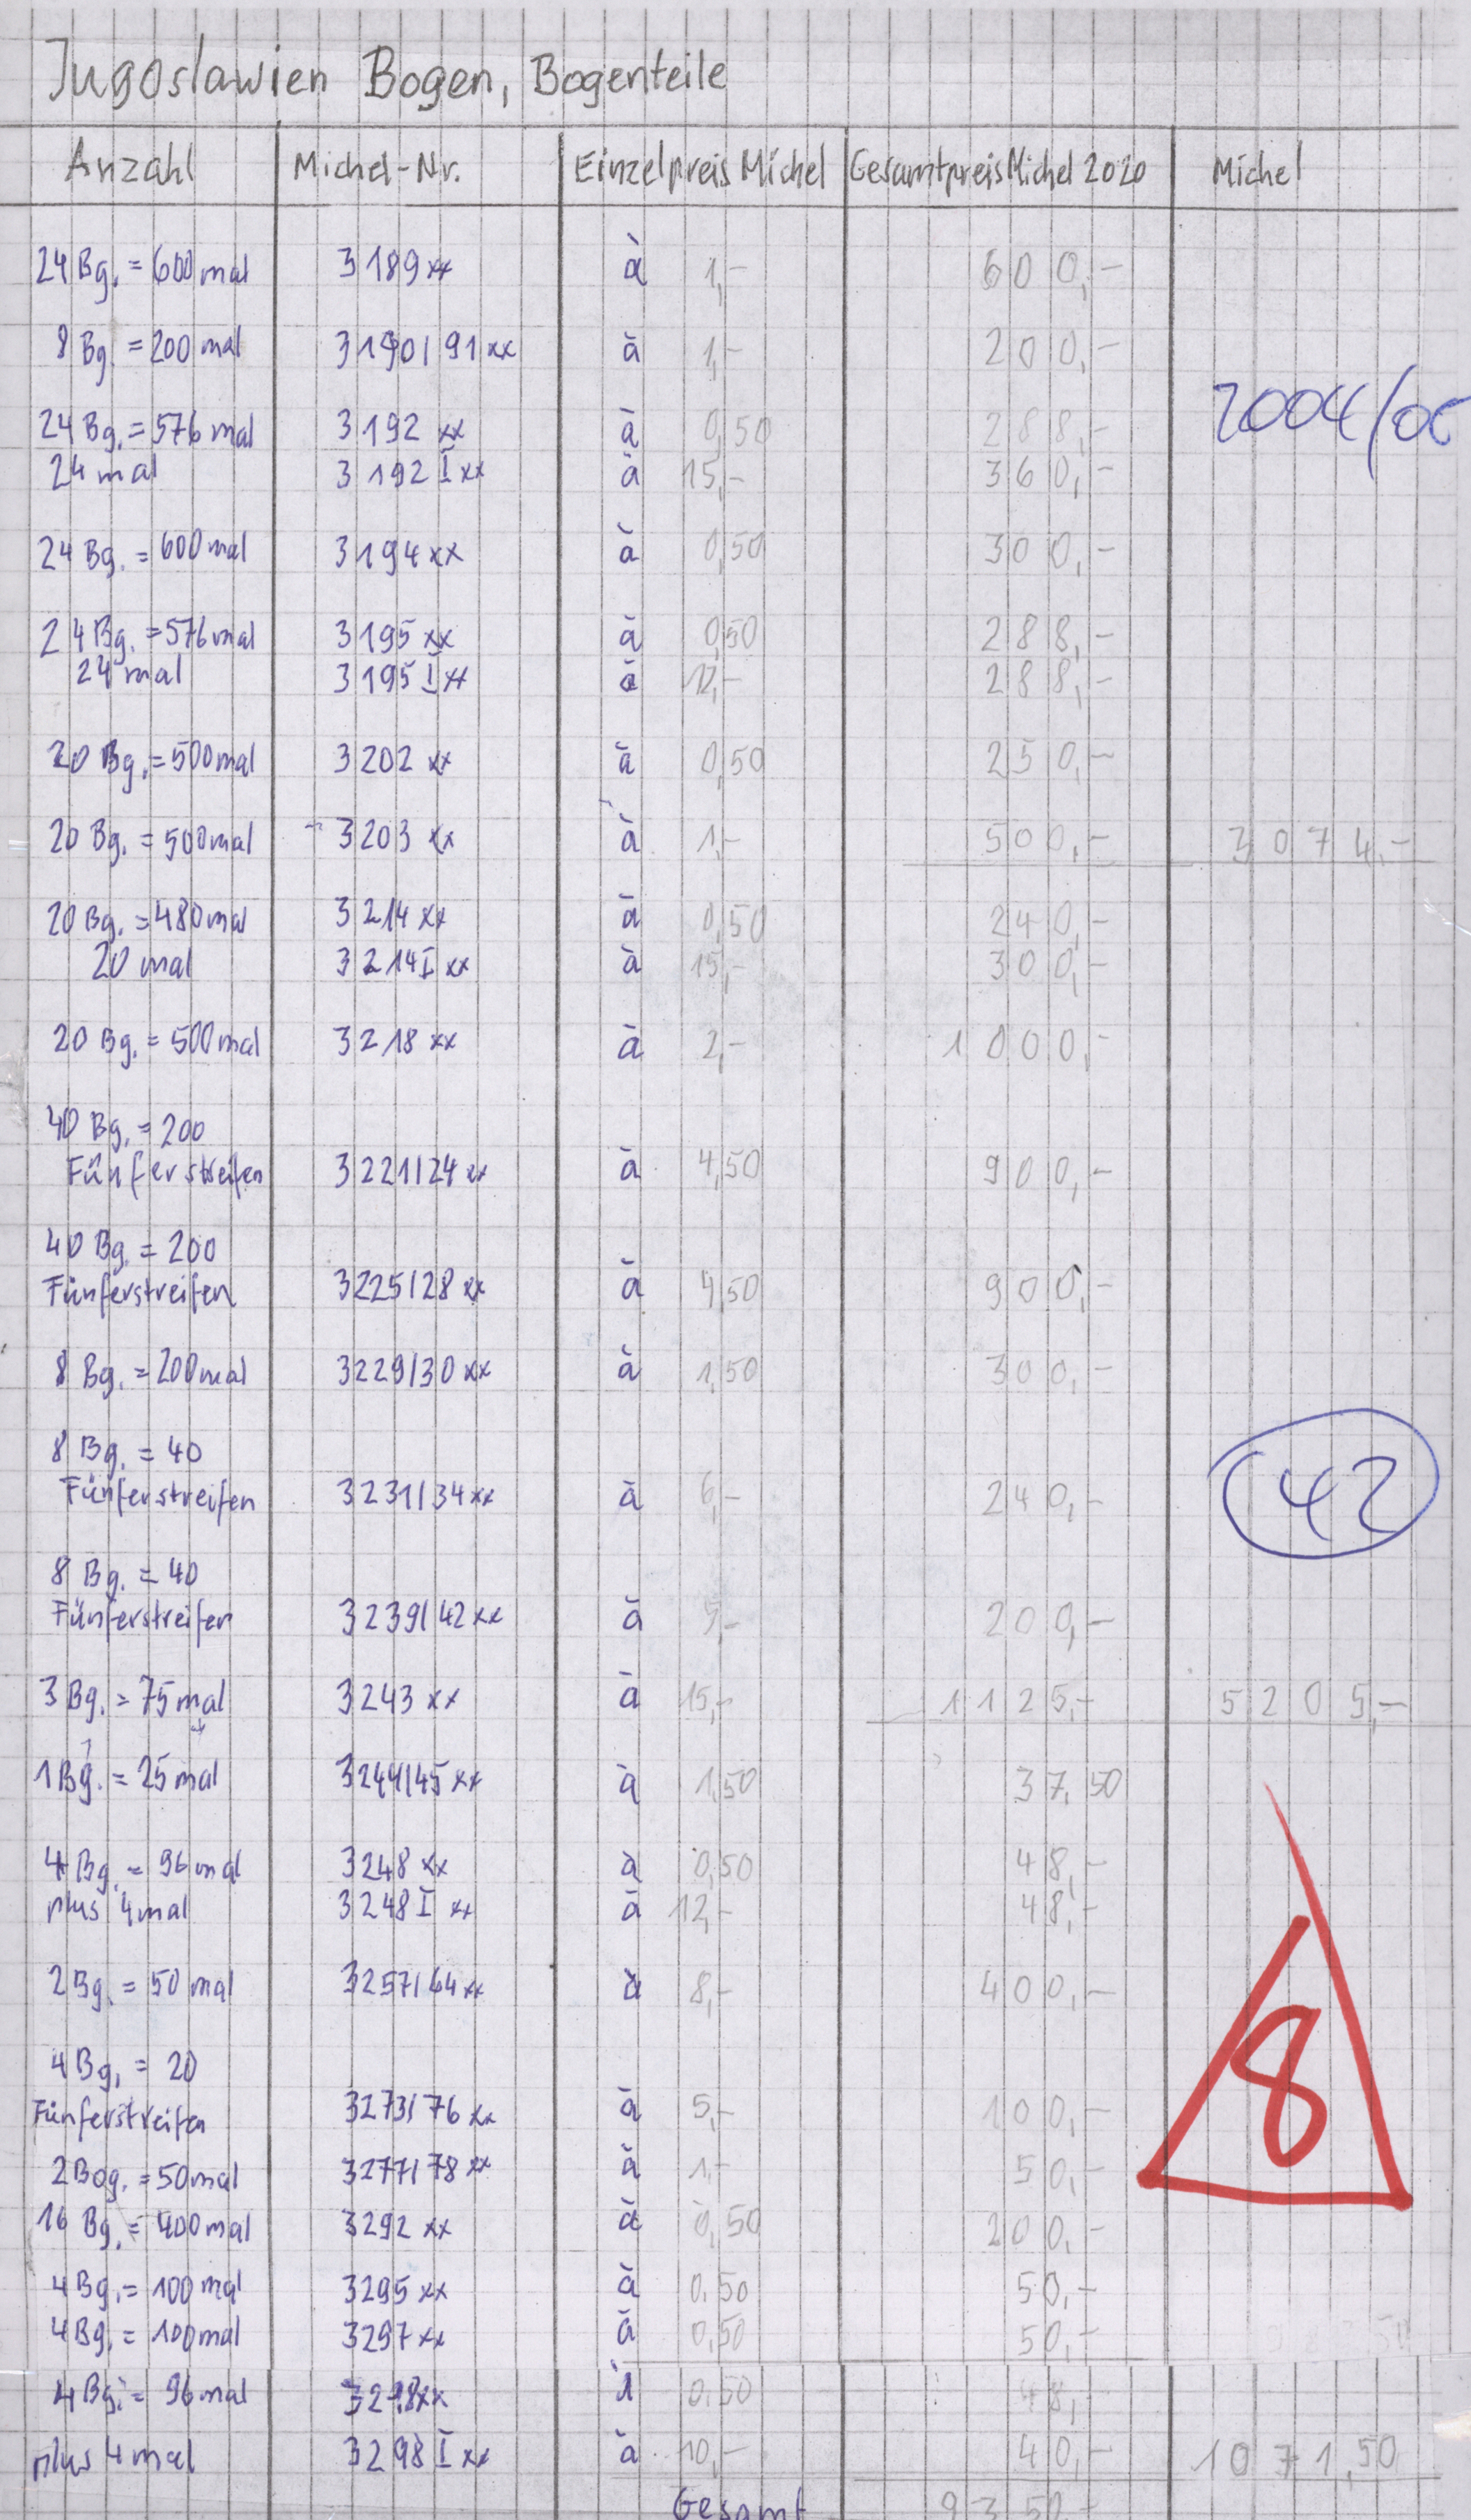 Jugoslawien Bogen, Bogenteile
Anzahl Michel-Nr. Einzelpreis Michel Gesamtpreis Michel 2020 Michel
24 Bg. = 600 mal 3189 xx à 1,- 600,-
8 Bg. = 200 mal 3190/91 xx à 1,- 200,-
2004/
24 Bg. = 576 mal 3192 xx à 0,50 288,-
24 mal 3192 I xx à 15,- 360,-
24 Bg. = 600 mal 3194 xx à 0,50 300,-
24 Bg. = 576 mal 3195 xx à 0,50 288,-
24 mal 3195 I xx à 12,- 288,-
20 Bg. = 500 mal 3202 xx à 0,50 250,-
20 Bg. = 500 mal 3203 xx à 1,- 500,- 3074,-
20 Bg. = 480 mal 3214 xx à 0,50 240,-
20 mal 3214 I xx à 15,- 300,-
20 Bg. = 500 mal 3218 xx à 2,- 1000,-
40 Bg. = 200
Fünferstreifen 3221/24 xx à 4,50 900,-
40 Bg. = 200
Fünferstreifen 3225/28 xx à 4,50 900,-
8 Bg. = 200 mal 3229/30 xx à 1,50 300,-
8 Bg. = 40
42
Fünferstreifen 3231/34 xx à 6,- 240,-
8 Bg. = 40
Fünferstreifen 3239/42 xx à 5,- 200,-
3 Bg. = 75 mal 3243 xx à 15,- 1125,- 5205,-
1 Bg. = 25 mal 3244/45 xx à 1,50 37,50
4 Bg. = 96 mal 3248 xx à 0,50 48,-
plus 4 mal 3248 I xx à 12,- 48,-
2 Bg. = 50 mal 3257/64 xx à 8,- 400,-
4 Bg. = 20
8
Fünferstreifen 3273/76 xx à 5,- 100,-
2 Bog. = 50 mal 3277/78 xx à 1,- 50,-
16 Bg. = 400 mal 3292 xx à 0,50 200,-
4 Bg. = 100 mal 3295 xx à 0,50 50,-
4 Bg. = 100 mal 3297 xx à 0,50 50,-
4 Bg. = 96 mal 3298 xx à 0,50 48,-
plus 4 mal 3298 I xx à 10,- 40,- 1071,50
Gesamt 9350,-